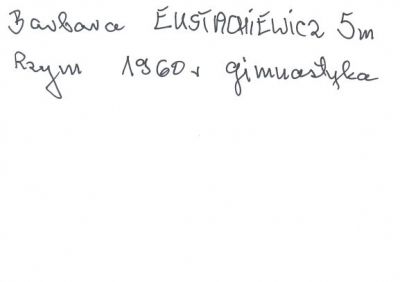 Barbara EUSTACHIEWICZ 5m
Rzym 1960r gimnastyka